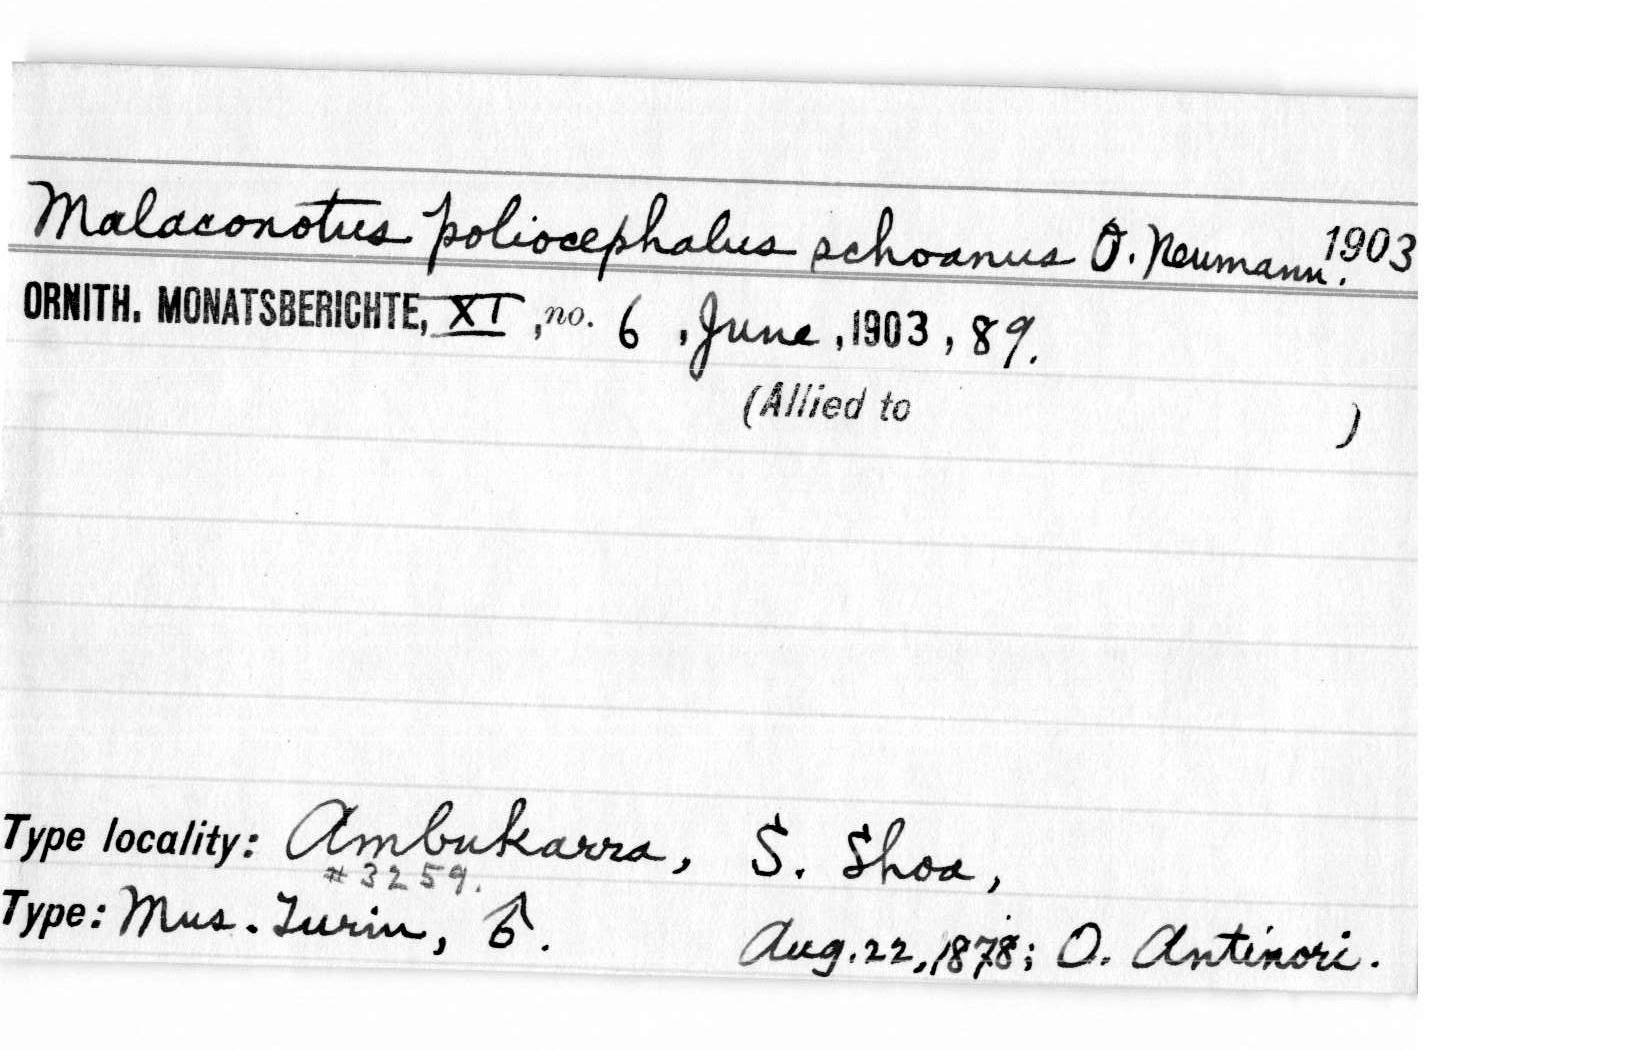 Malaconotus poliocephalus schoanus O. Neumann. 1903
ORNITH. MONATSBERICHTE, XI, no. 6, June, 1903, 89.
(Allied to )
Type locality: Ambukarra, S. Shoa,
#3259.
Type: Mus. Turin, ♂. Aug. 22, 1878; O. Antinori.